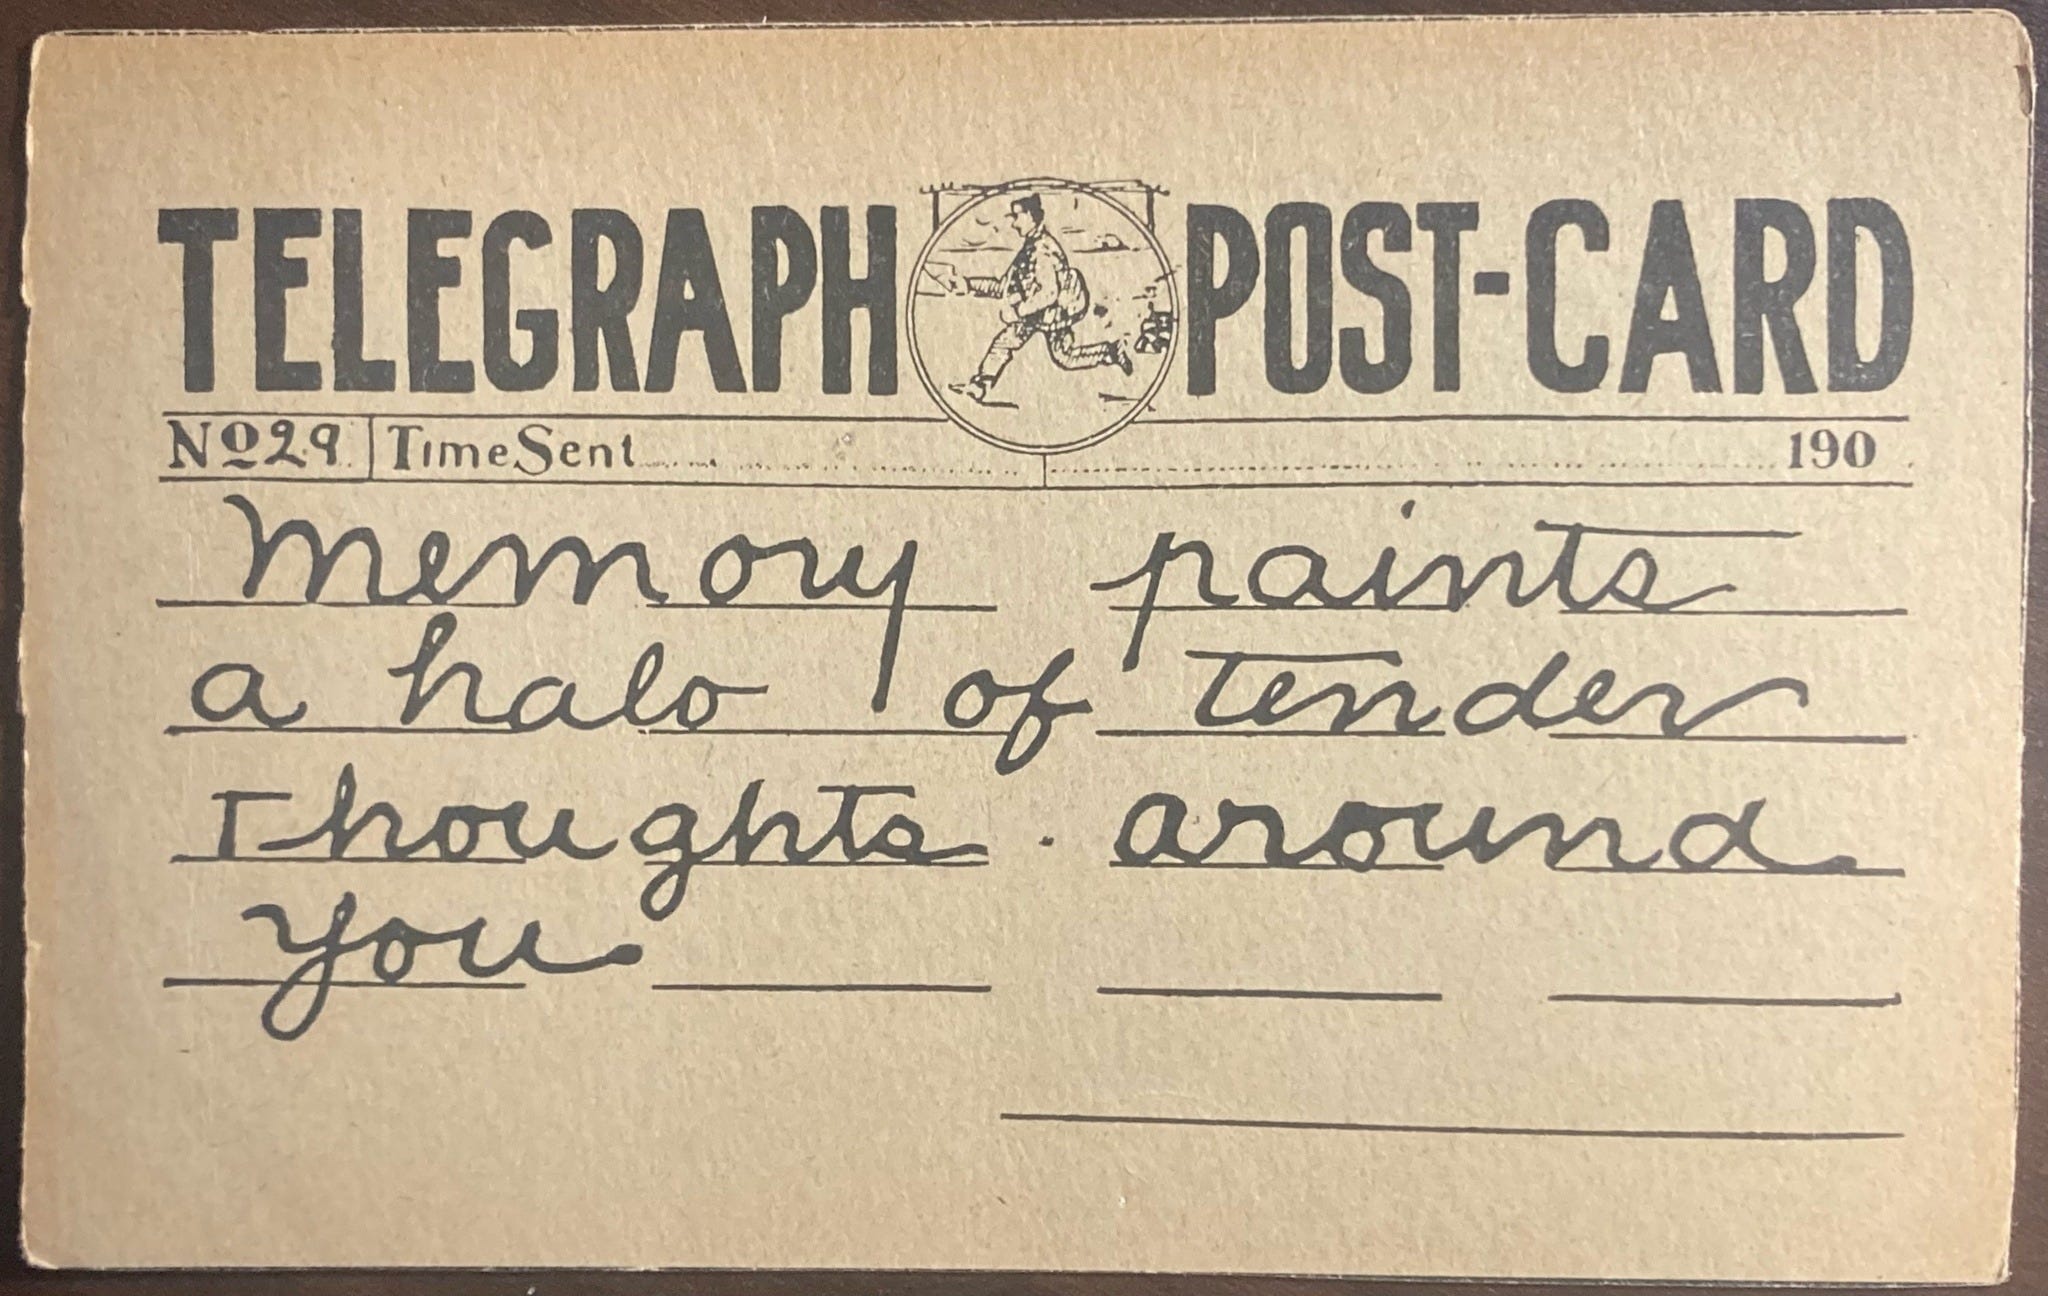 TELEGRAPH POST-CARD
No 29. Time Sent 190
Memory paints
a halo of tender
Thoughts around
you.